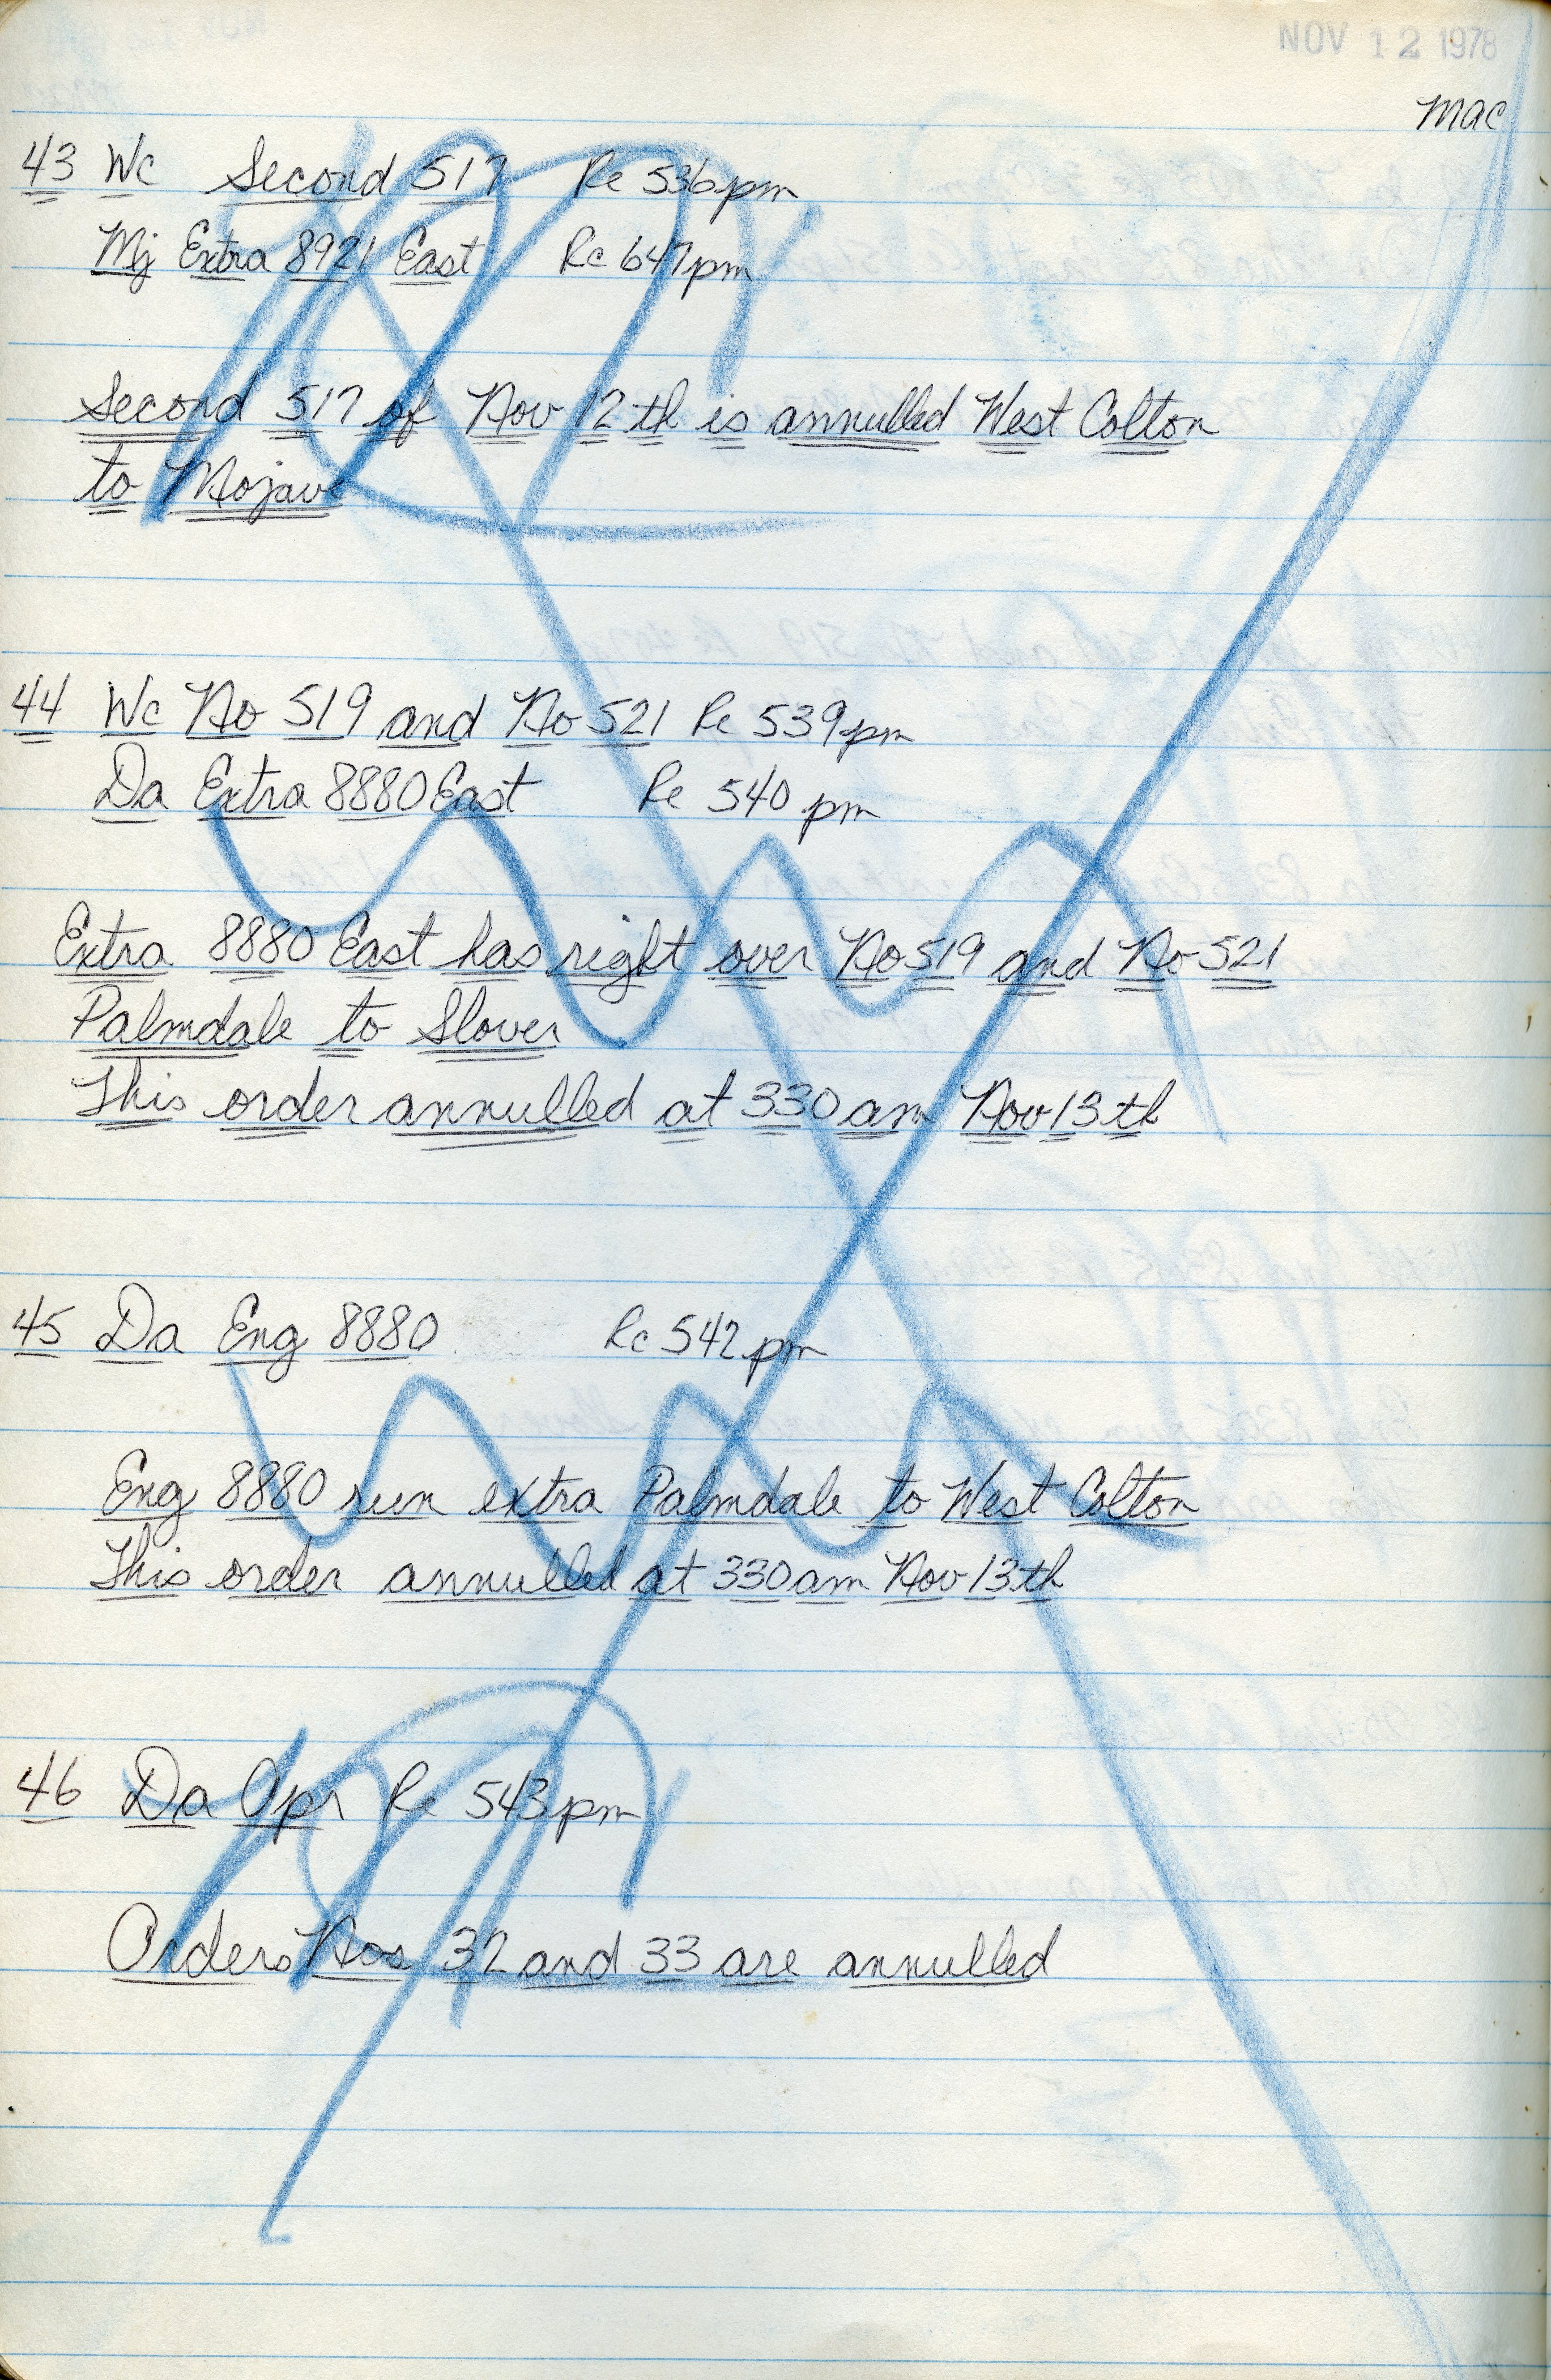 NOV 12 1978
mac
43 Wc Second 517 Rc 536pm
Mj Extra 8921 East Rc 647pm
Second 517 of Nov 12th is annulled West Colton
to Mojave
44 Wc No 519 and No 521 Rc 539pm
Da Extra 8880 East Rc 540 pm
Extra 8880 East has right over No 519 and No 521
Palmdale to Slover
This order annulled at 330 am Nov 13th
45 Da Eng 8880 Rc 542 pm
Eng 8880 run extra Palmdale to West Colton
This order annulled at 330am Nov 13th
46 Da Opr Rc 543pm
Orders Nos 32 and 33 are annulled